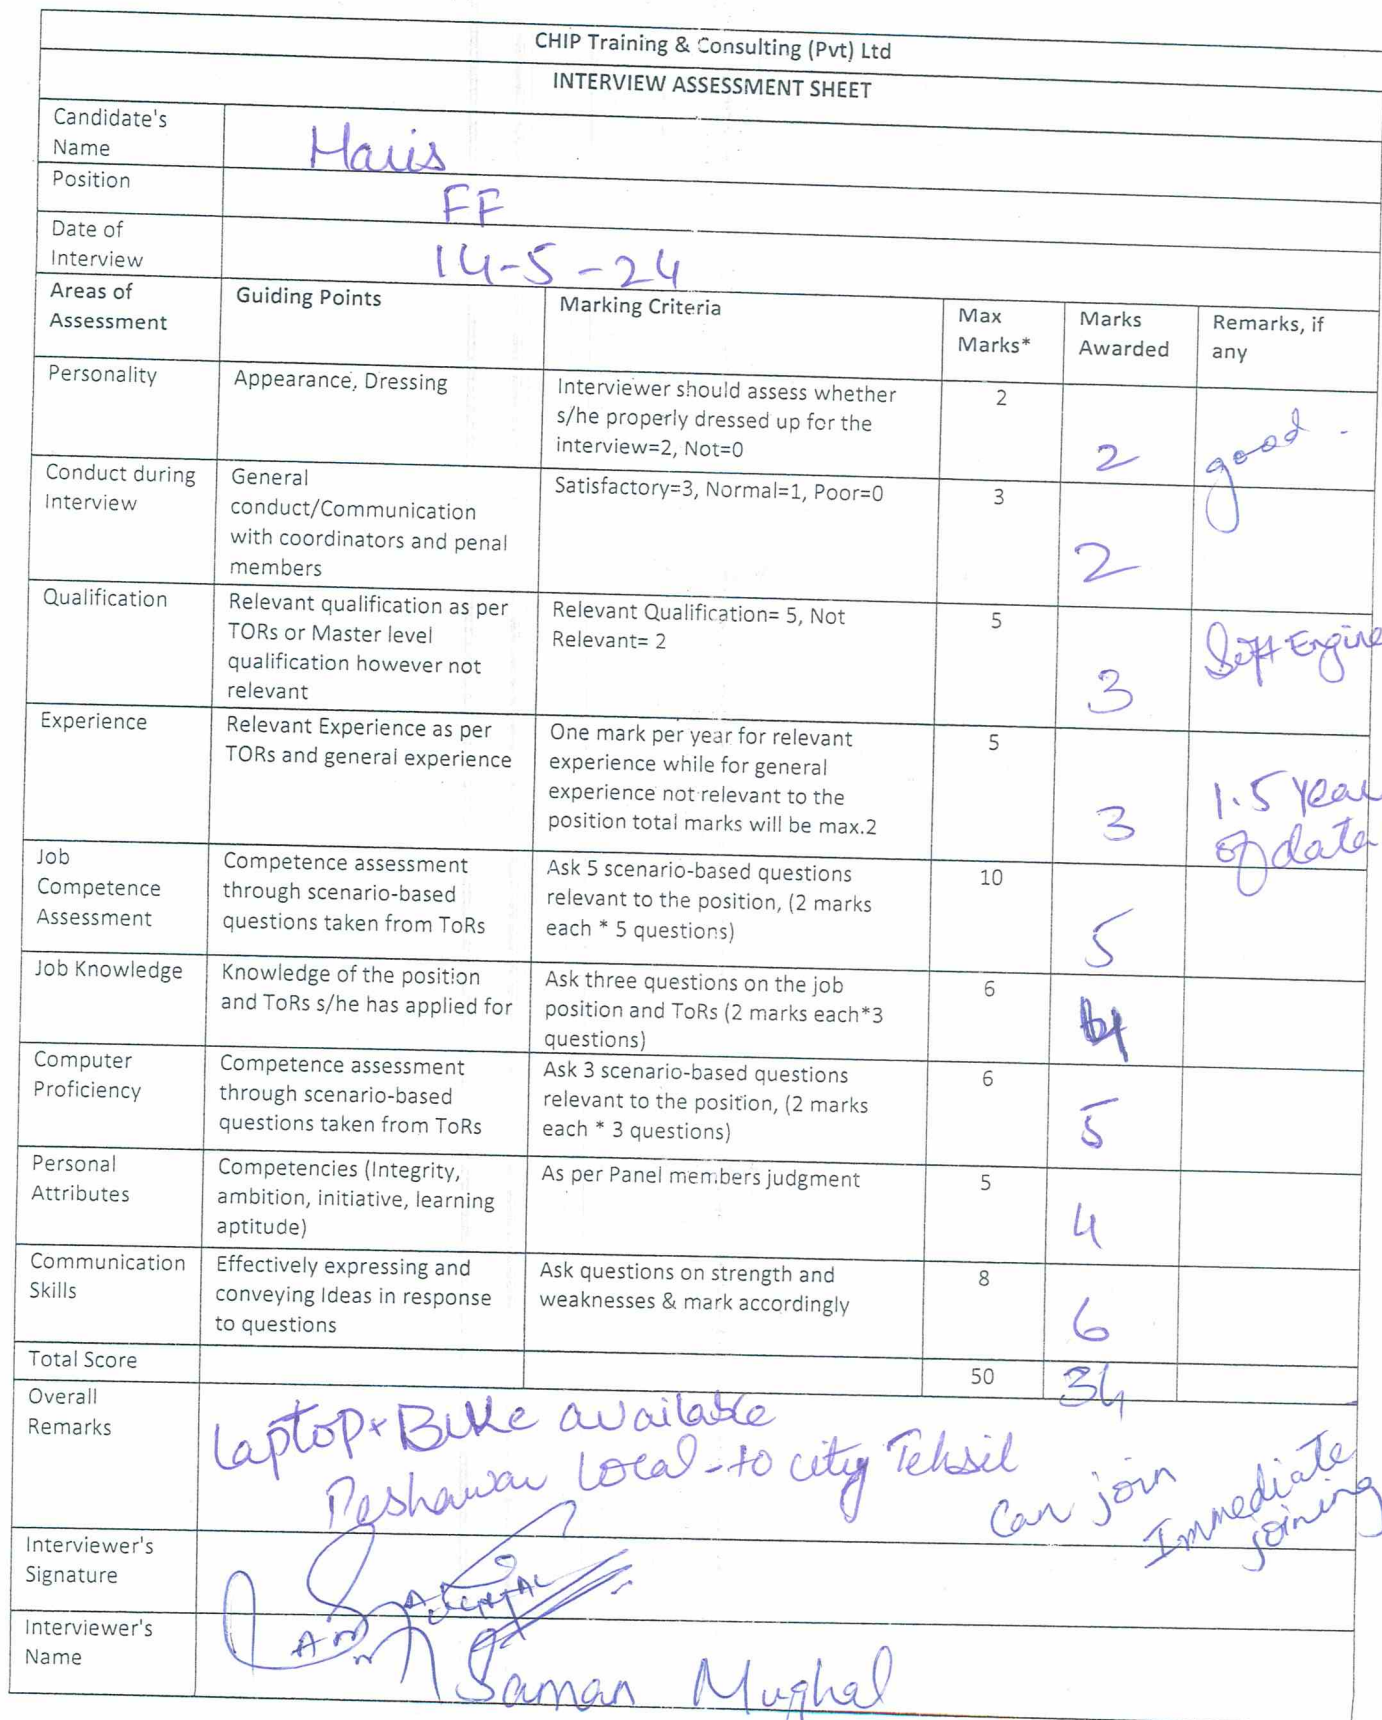 CHIP Training & Consulting (Pvt) Ltd
INTERVIEW ASSESSMENT SHEET
Candidate's
Name
Haris
Position
FF
Date of
Interview
14-5-24
Areas of
Assessment
Guiding Points
Marking Criteria
Max
Marks*
Marks
Awarded
Remarks, if
any
Personality
Appearance, Dressing
Interviewer should assess whether
s/he properly dressed up for the
interview=2, Not=0
2
2
good.
Conduct during
Interview
General
conduct/Communication
with coordinators and penal
members
Satisfactory=3, Normal=1, Poor=0
3
2
Qualification
Relevant qualification as per
TORs or Master level
qualification however not
relevant
Relevant Qualification= 5, Not
Relevant= 2
5
3
Soft Engine
Experience
Relevant Experience as per
TORs and general experience
One mark per year for relevant
experience while for general
experience not relevant to the
position total marks will be max.2
5
3
1.5 Year
of data
Job
Competence
Assessment
Competence assessment
through scenario-based
questions taken from ToRs
Ask 5 scenario-based questions
relevant to the position, (2 marks
each * 5 questions)
10
5
Job Knowledge
Knowledge of the position
and ToRs s/he has applied for
Ask three questions on the job
position and ToRs (2 marks each*3
questions)
6
4
Computer
Proficiency
Competence assessment
through scenario-based
questions taken from ToRs
Ask 3 scenario-based questions
relevant to the position, (2 marks
each * 3 questions)
6
5
Personal
Attributes
Competencies (Integrity,
ambition, initiative, learning
aptitude)
As per Panel members judgment
5
4
Communication
Skills
Effectively expressing and
conveying Ideas in response
to questions
Ask questions on strength and
weaknesses & mark accordingly
8
6
Total Score
50
34
Overall
Remarks
Laptop+Bike available
Peshawar Local-to city Tehsil
Can join
Immediate
joining
Interviewer's
Signature
Interviewer's
Name
Saman Mughal